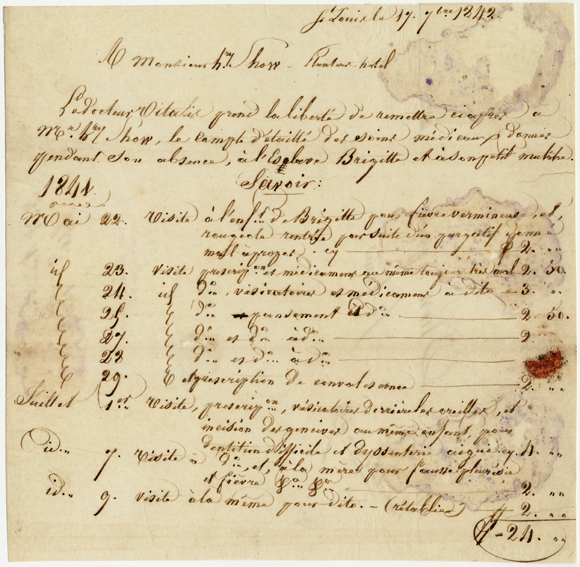 St Louis le 17. 7bre 1842.
A Monsieur hry Show - Planters hotel
Le docteur Vitalis prend la liberté de remettre ci après a
Mr hry Show, le compte détaillé des soins médicaux donnés
pendant son absence, à l'Esclave Brigitte et à son petit mulatre.
Savoir:
1841.
Mai 22. Visite à l'enft. de Brigitte pour fièvre vermineuse, et,
rougeole rentrée par suite d'un purgatif donné
mal à propos, cy $ 2. "
id 23. visite prescripon. et médicament au même toujours très mal 2. 50.
24. id do. vésicatoires et médicament a dito 3. "
25. do. pansement do. 2. 50.
27. do et do. a do. 2
28 do et do. à do.
29. Et prescription de convalescence 2. "
Juillet 1er Visite, prescripon., vésicatoires derrière les oreilles, et
incision des gencives au même enfant pour
dentition difficile et dyssenterie aigue cy. 4. "
id.. 7. Visite à do, et, à la mère pour fausse pleurésie
et fièvre 2. "
id.. 9. visite à la même pour dito. - (rétablie) 2. "
$ - 24. "